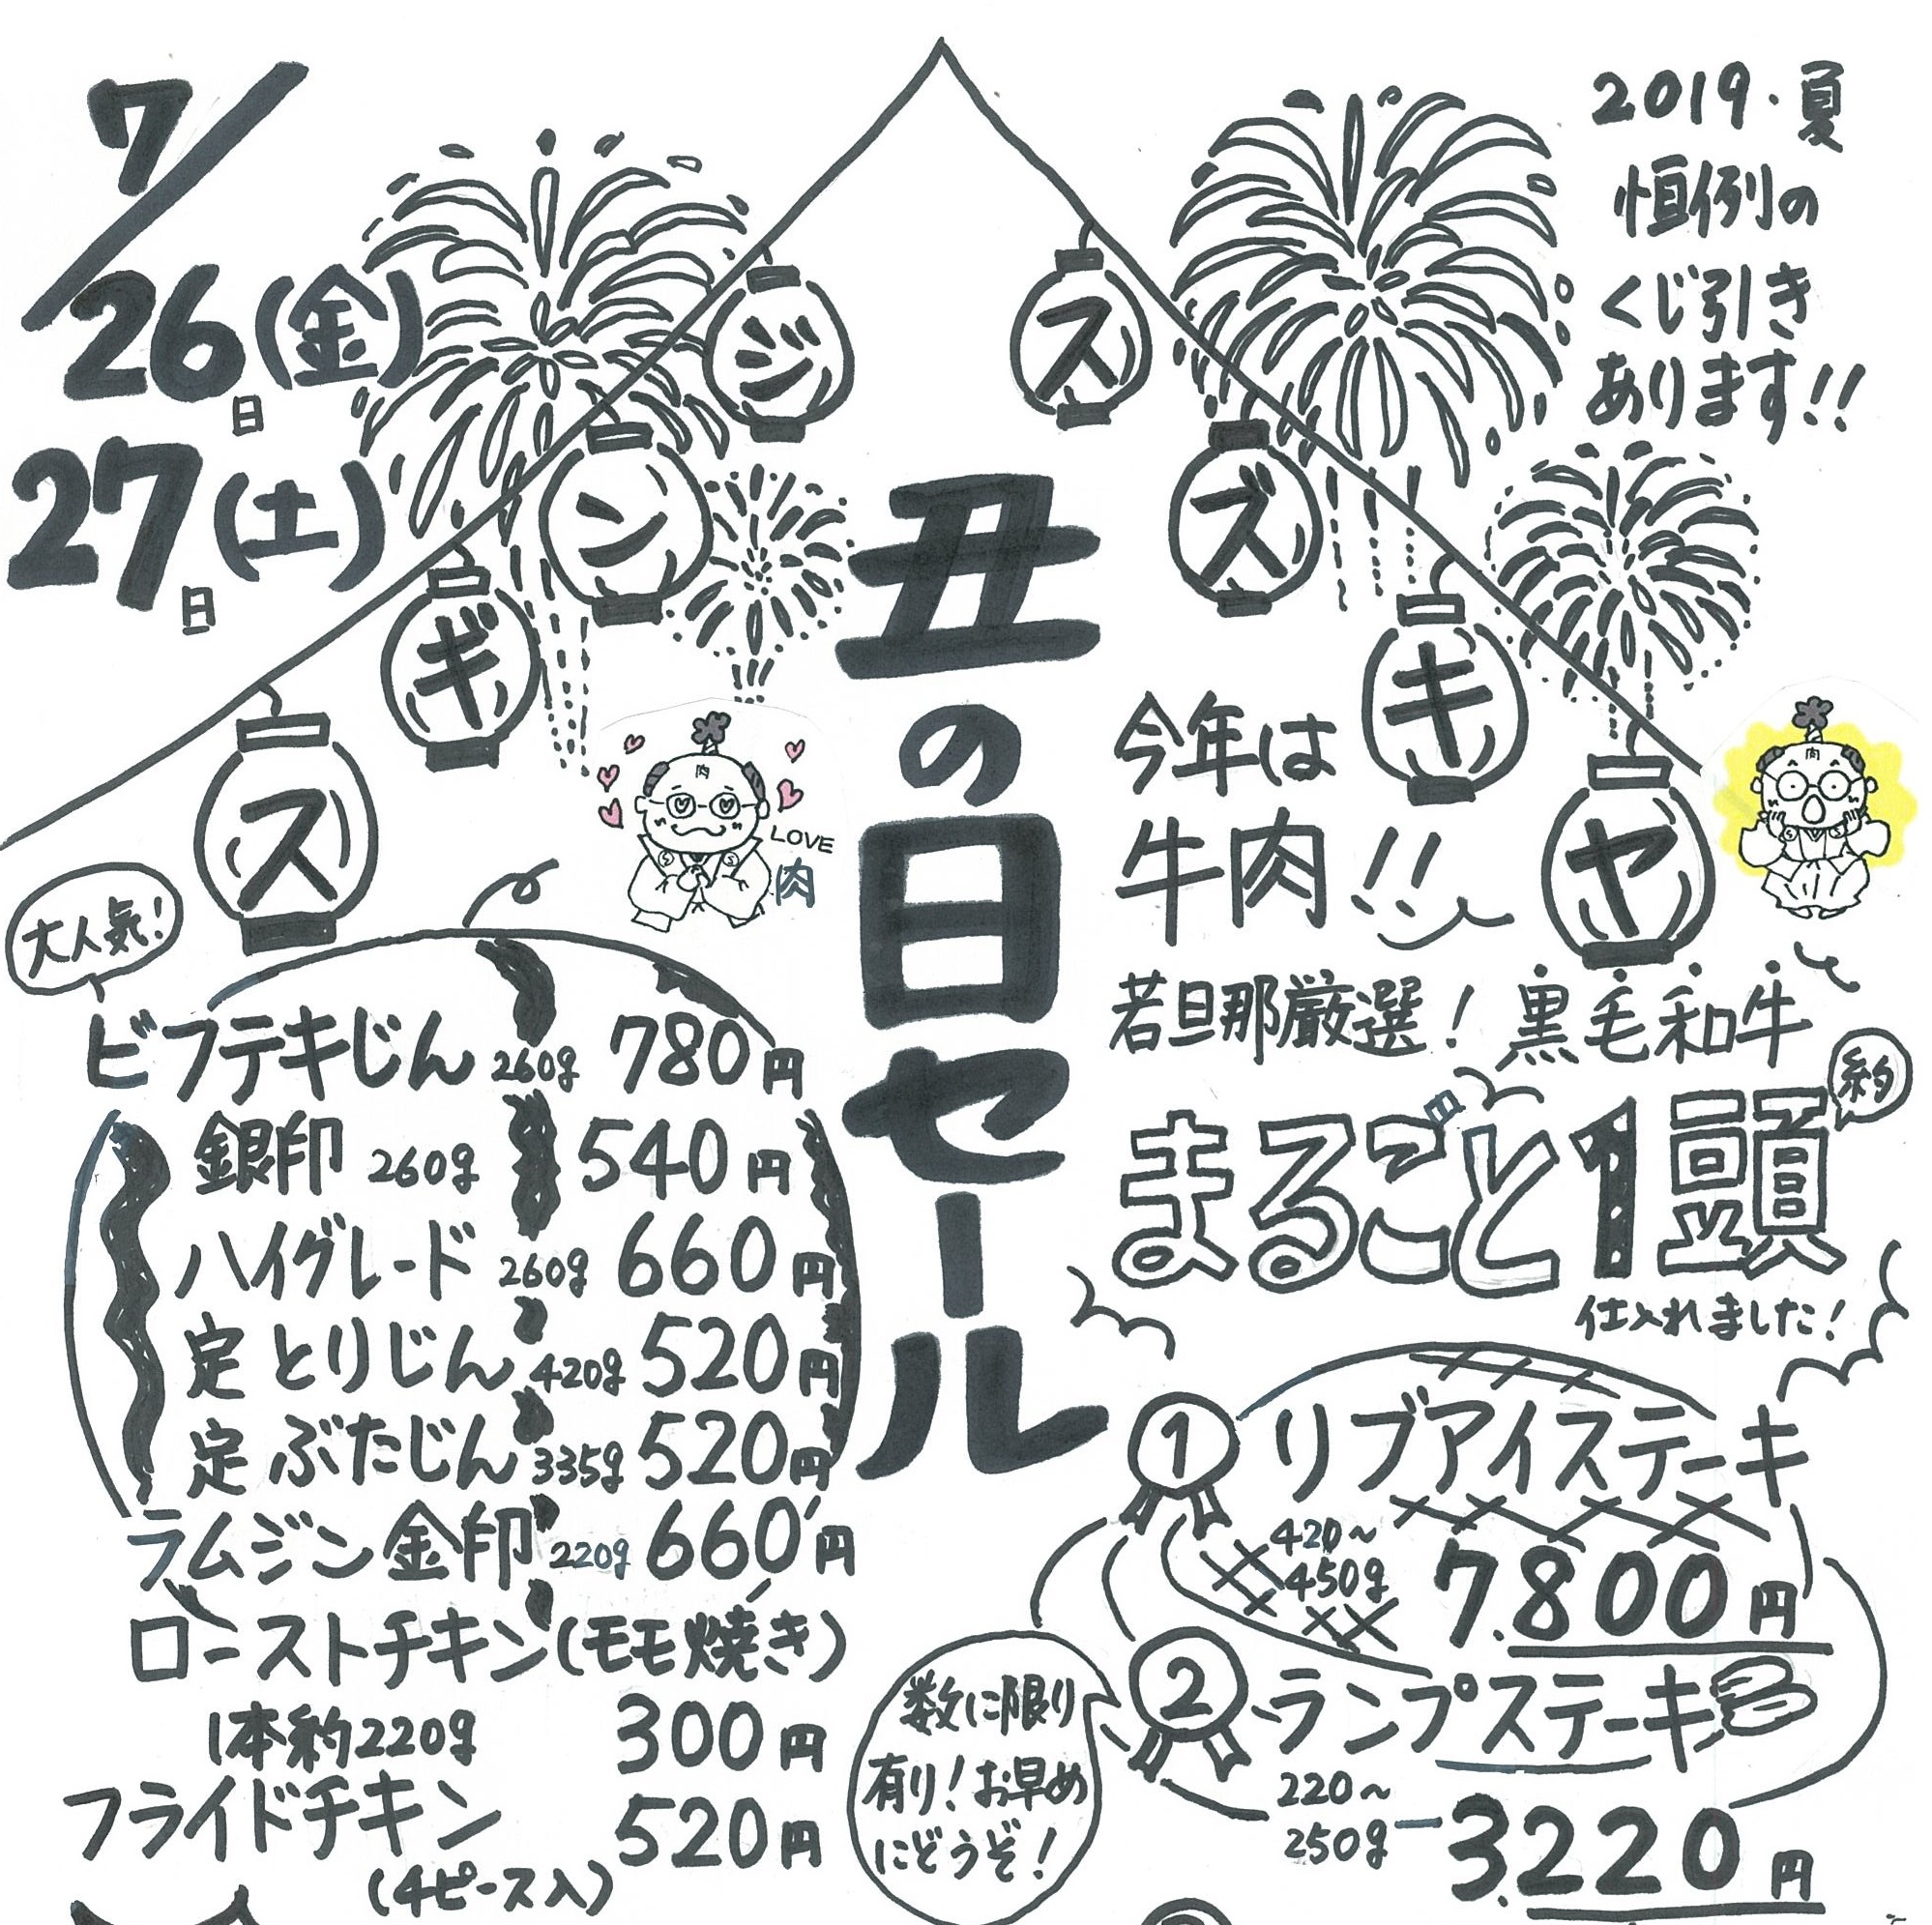 7/
26日(金)
27日(土)
スギンジ
スズキヤ
2019・夏
恒例の
くじ引き
あります!!
丑の日セール
肉
LOVE
肉
大人気!
ビフテキじん 260g 780円
銀印 260g 540円
ハイグレード 260g 660円
定 とりじん 420g 520円
定 ぶたじん 335g 520円
ラムジン金印 220g 660円
ローストチキン(モモ焼き)
1本約220g 300円
フライドチキン 520円
(4ピース入)
今年は
牛肉!!
肉
若旦那厳選! 黒毛和牛
約
まるごと1頭
仕入れました!
1 リブアイステーキ
420~
450g 7.800円
2 ランプステーキ
220~
250g 3.220円
数に限り
有り!お早め
にどうぞ!